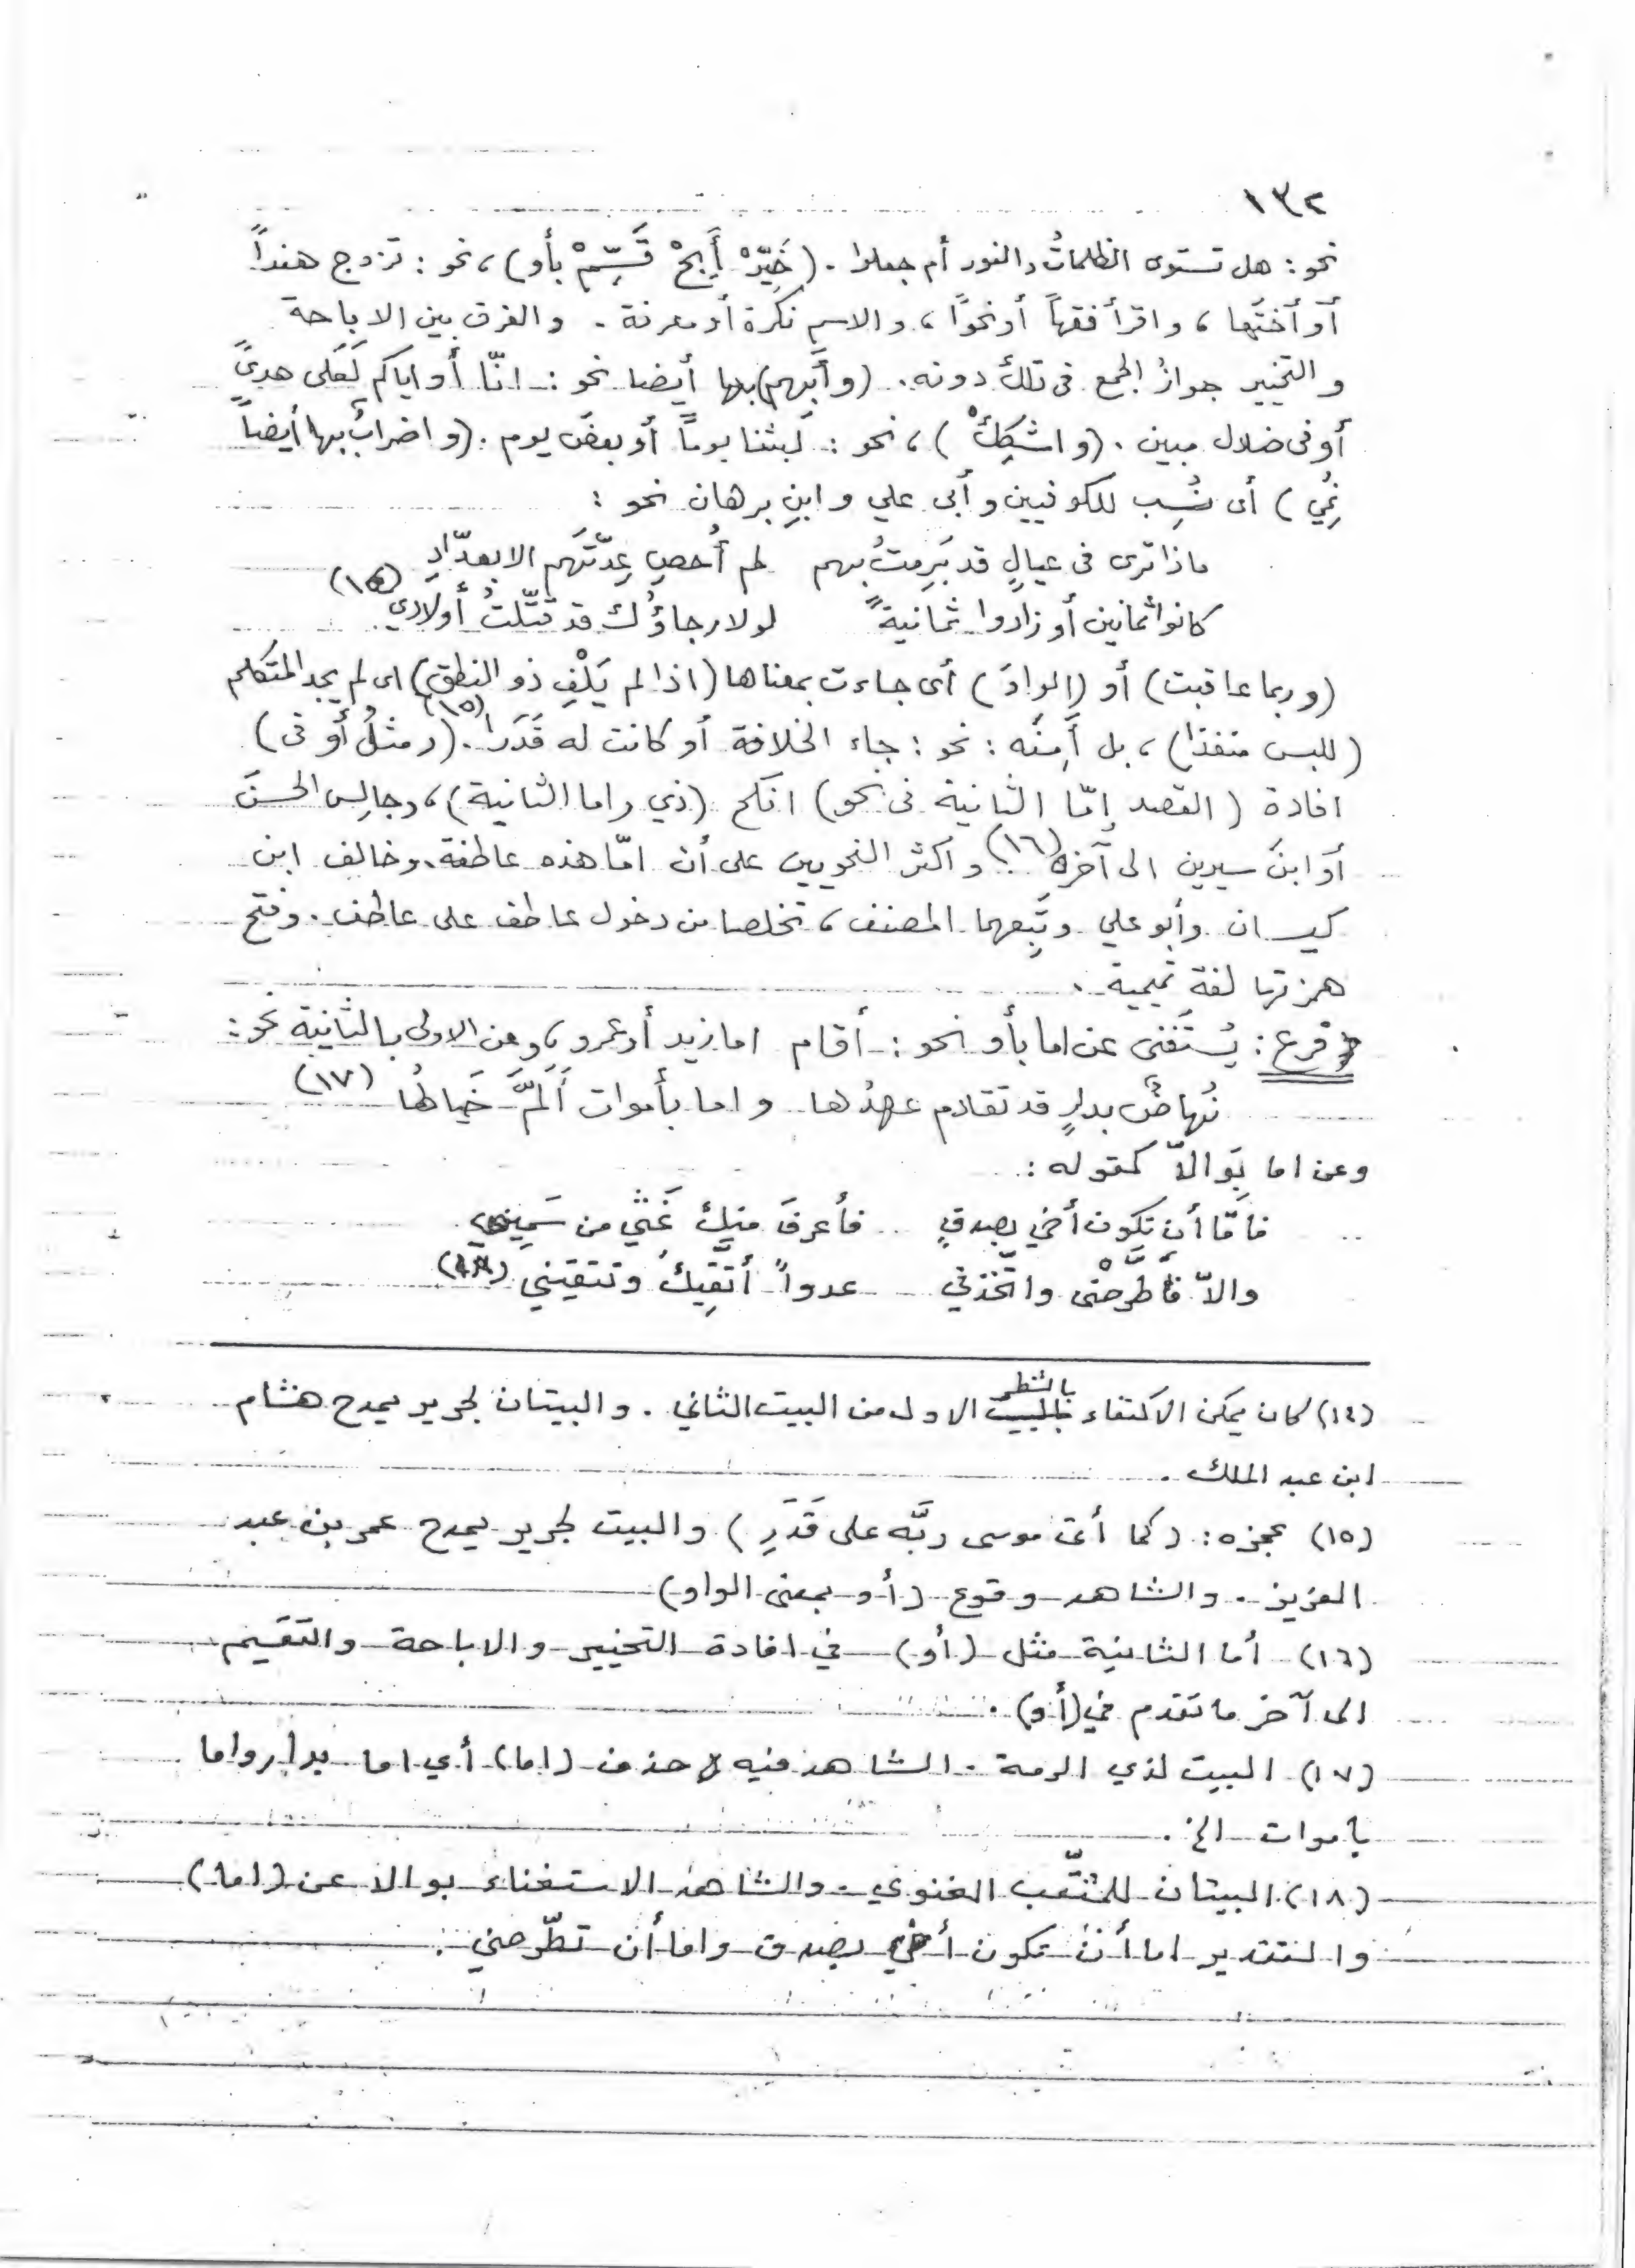 ١٣٢
نحو: هل تستوى الظلماتُ والنور أم جعلوا . (خَيِّرْ أَبِحْ قَسِّمْ بأو) ، نحو : تزوج هنداً
أو أختَها ، واقرأ فقهاً أو نحواً ، والاسم نكرة أو معرفة . والفرق بين الاباحة
والتخيير جوازُ الجمع فى تلك دونه . (وأَبهِم) بها أيضا نحو : انّا أو اياكم لَعَلى هدىً
أو فى ضلال مبين . (واشكِكْ ) ، نحو : لبثنا يوماً أو بعضَ يوم . (واضرابٌ بها أيضاً
نُمِي ) أى نُسِب للكوفيين وأبى علي وابنِ برهان نحو :
ماذا ترى فى عيالٍ قد بَرِمتُ بهم لم أُحصِ عِدّتَهم الا بعدّادِ
كانوا ثمانين أو زادوا ثمانيةً لولا رجاؤُك قد قتّلتُ أولادي (١٤)
(وربما عاقبت) أو (الواوَ) أى جاءت بمعناها (اذا لم يَلْفِ ذو النطق) اى لم يجد المتكلم
(للبس منفذا) ، بل أَمِنَه : نحو : جاء الخلافة أو كانت له قَدَرَا (١٥) . (ومثلُ أو فى)
افادة (القصد إمّا الثانية فى نحو) انكح (ذي واما الثانية) ، وجالِس الحسنَ
أو ابنَ سيرين الى آخره (١٦) . واكثر النحويين على أن امّا هذه عاطفة ، وخالف ابن
كيسان وأبو علي وتَبِعهما المصنف ، تخلصا من دخول عاطف على عاطف . وفتح
همزتها لغة تميمية .
فرع : يُستَغنى عن اما بأو نحو : أقام اما زيد أو عمرو ، وعن الاولى بالثانية نحو :
تُهاضُ بدارٍ قد تقادم عهدُها واما بأموات أَلَمَّ خَيالُها (١٧)
وعن اما بِوَالاّ كقوله :
فامّا أن تكون أخي بصدقٍ فأعرفَ منك غَثّي من سَمِيني
والاّ فاطّرحنى واتّخذني عدواً أتّقِيكَ وتتقيني (١٨)
(١٤) كان يمكن الاكتفاء بالشطر الاول من البيت الثاني . والبيتان لجرير يمدح هشام
ابن عبد الملك .
(١٥) عجزه : (كما أتى موسى ربَّه على قَدَرِ ) والبيت لجرير يمدح عمر بن عبد
العزيز . والشاهد وقوع (أو بمعنى الواو)
(١٦) أما الثانية مثل (أو) في افادة التخيير والاباحة والتقسيم
الى آخر ما تقدم في (أو) .
(١٧) البيت لذي الرمة . الشاهد فيه حذف (اما) أي اما بدار واما
بأموات الخ .
(١٨) البيتان للمثقّب الغنوي . والشاهد الاستغناء بوالا عن (اما)
والتقدير اما أن تكون أخي بصدق واما أن تطّرحني .